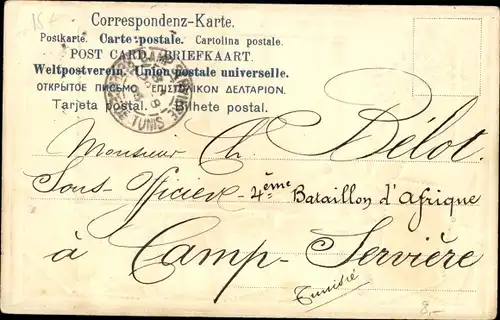 15
Correspondenz-Karte.
Postkarte. Carte postale. Cartolina postale.
POST CARD. BRIEFKAART.
Weltpostverein. Union postale universelle.
ОТКРЫТОЕ ПИСЬМО ΕΠΙΣΤΟΛΙΚΟΝ ΔΕΛΤΑΡΙΟΝ.
Tarjeta postal. Bilhete postal.
CAMP SERVIERE
TUNIS
Monsieur Ch. Bélot.
Sous-Officier - 4ème Bataillon d'Afrique
à Camp-Servière
Tunisie
8,-